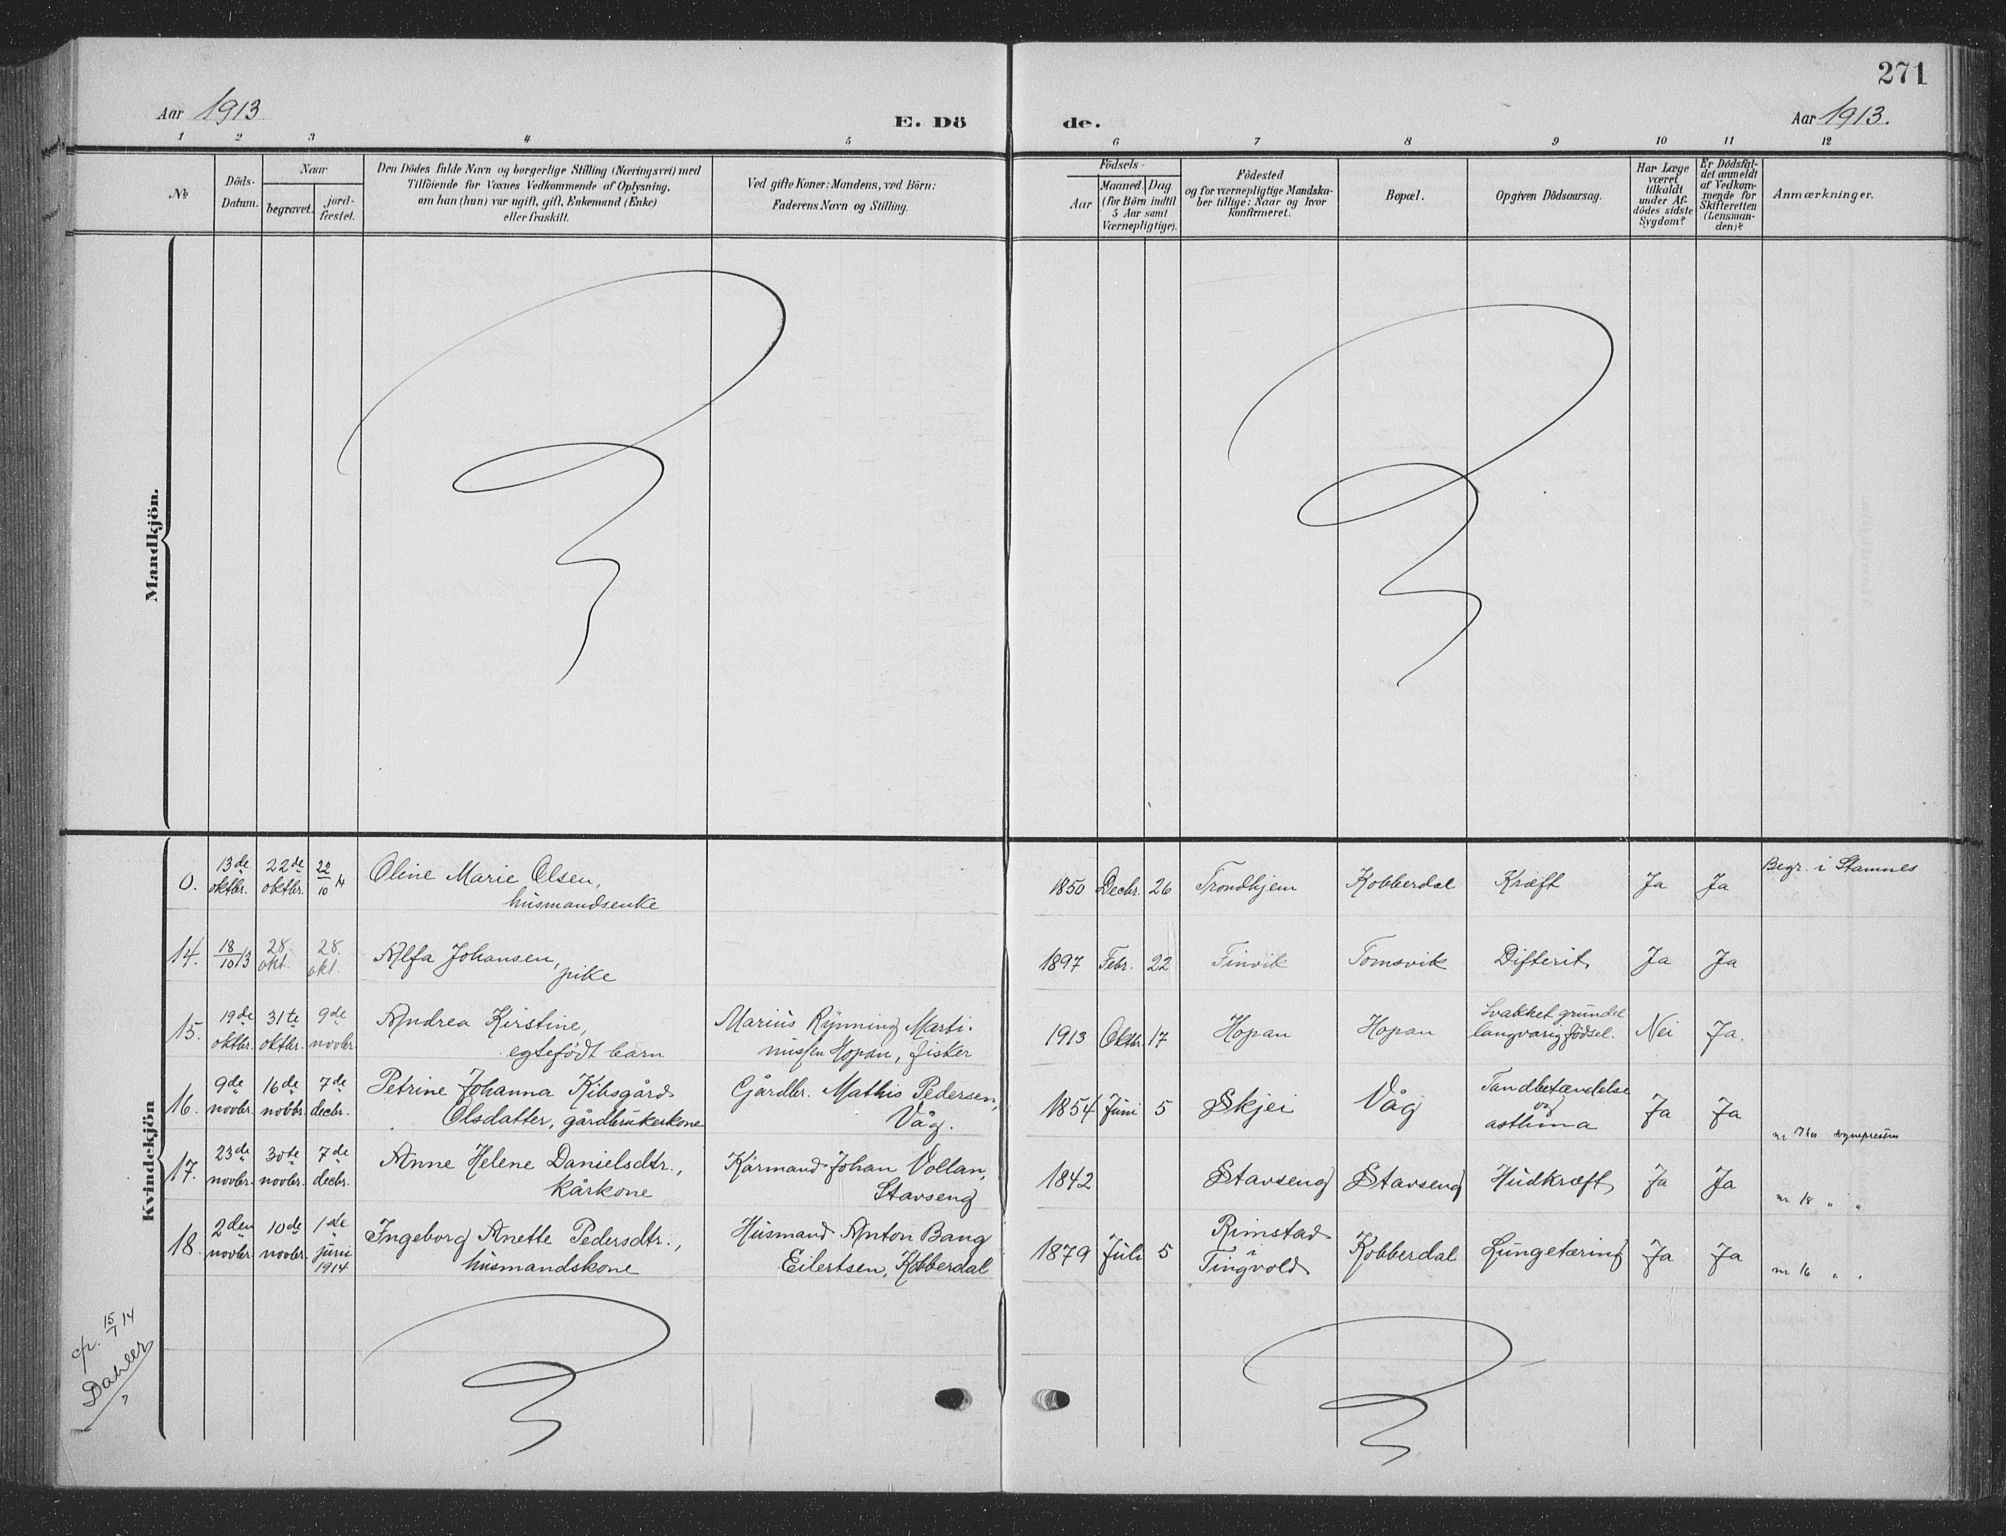 271
Aar 1913
E. Dö
de.
Aar 1913.
1 2 3 4 5 6 7 8 9 10 11 12
No
Döds-
Datum.
Naar
begravet.
jord-
fæstet.
Den Dödes fulde Navn og borgerlige Stilling (Næringsvei) med
Tilföiende for Voxnes Vedkommende af Oplysning,
om han (hun) var ugift, gift, Enkemand (Enke)
eller fraskilt.
Ved gifte Koner: Mandens, ved Börn:
Faderens Navn og Stilling.
Födsels-
Aar
Maaned. Dag.
(for Börn indtil
5 Aar samt
Værnepligtige).
Födested
og for værnepligtige Mandska-
ber tillige: Naar og hvor
konfirmeret.
Bopæl.
Opgiven Dödsaarsag.
Har Læge
været
tilkaldt
under Af-
dödes sidste
Sygdom?
Er Dödsfal-
det anmeldt
af Vedkom-
mende for
Skifteretten
(Lensman-
den)?
Anmærkninger.
Mandkjön.
Kvindekjön
0. 13de oktbr. 22de oktbr. 22/10 Oline Marie Olsen,
husmandsenke
1850 Decbr. 26 Trondhjem Kobberdal Kræft Ja Ja Begr. i Stamnes
14. 18/10 13 28. okt. 28. okt. Alfa Johansen,
pike
1897 Febr. 22 Finvik Tomsvik Difterit Ja Ja
15. 19de oktbr. 31te oktbr. 9de novbr. Andrea Kirstine,
egtefödt barn
Marius Rynning Marti-
nussen Hopan, fisker
1913 Oktbr. 17 Hopan Hopan Svakket grundet
langvarig födsel. Nei Ja.
16. 9de novbr. 16de novbr. 7de decbr. Petrine Johanna Kibsgård
Olsdatter, gårdbrukerkone
Gårdbr. Mathis Pedersen,
Våg.
1854 Juni 5 Skjei Våg Tandbetændelse
og
asthma Ja Ja
17. 23de novbr. 30te novbr. 7de decbr. Anne Helene Danielsdtr.,
kårkone
Kårmand Johan Vollan,
Stavseng
1842 Stavseng Stavseng Hudkræft Ja Ja
nr 18 " "
18. 2den novbr. 10de novbr. 1ste juni 1914 Ingeborg Anette Pedersdtr.,
husmandskone
Husmand Anton Bang
Eilertsen, Kobberdal
1879 Juli 5 Rimstad
i
Tingvold Kobberdal Lungetæring Ja Ja
nr 16 " "
cfr. 15/1 14
Dahler